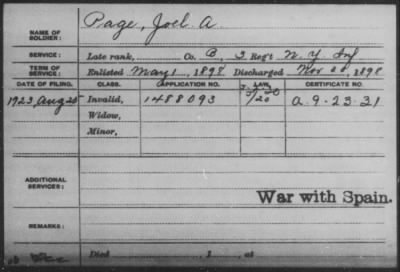 NAME OF SOLDIER: Page, Joel A.
SERVICE: Late rank, Co. B, 3 Reg't N. Y. Inf
TERM OF SERVICE: Enlisted May 1, 1898 Discharged Nov 1898
DATE OF FILING. CLASS. APPLICATION NO. LAW. CERTIFICATE NO.
1923, Aug 20 Invalid, 1488093 A-9-23-31
Widow,
Minor,
ADDITIONAL SERVICES:
War with Spain.
REMARKS:
Died , 1 , at